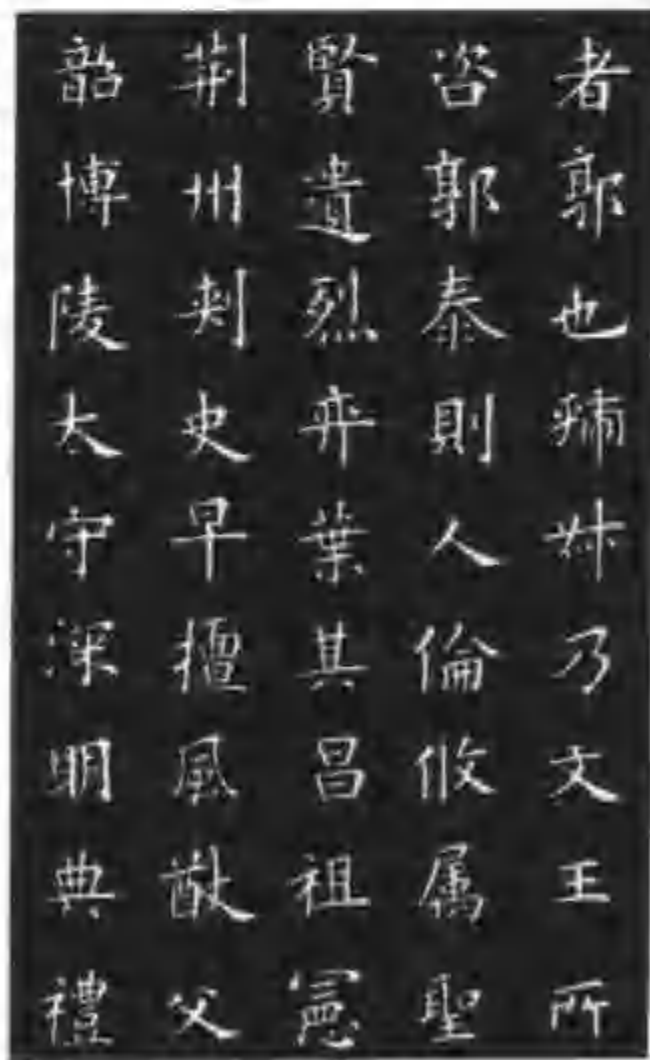 者郭也瘺妹乃文王所
咨郭泰則人倫攸属聖
賢遺烈弈葉其昌祖憲
荆州刾史早擅風猷父
韶博陵太守深明典禮